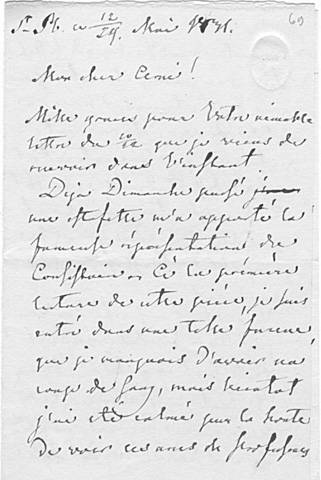 69
St. Pb. ce 12/24 Mai
Mon cher Cerni!
Mille graces pour Votre aimable
lettre du que je viens de
recevoir dans l'instant.
Déja Dimanche passé
une estafette m'a apporté la
fameuse représentation du
Consistoire. A la première
lecture de cette pièce, je suis
entré dans une telle fureur
que je manquais d'avoir un
coup de sang, mais bientot
j'ai été calmé par la honte
de voir ces de professeurs